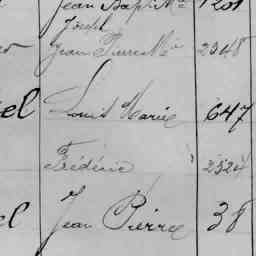 Jean Bapt. Me 1201
Joseph
Jean Pierre Me 2348
el Louis Marie 647
Frédéric 2524
el Jean Pierre 38